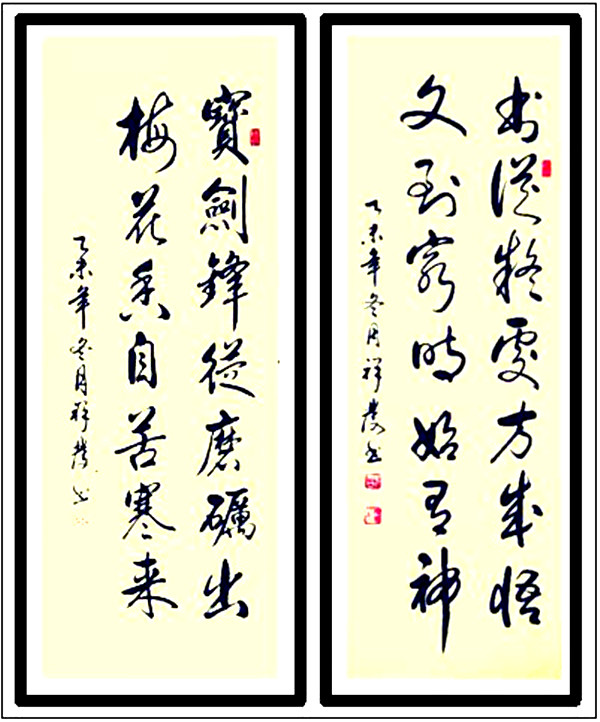 书從疑處方成悟
文到窮時始有神
乙未年冬月祥书
寶劍鋒從磨礪出
梅花香自苦寒来
乙未年冬月祥书